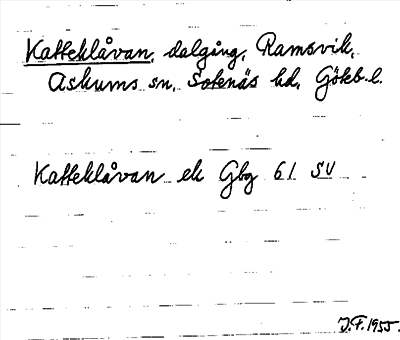 Kaffeklåvan, dalgång, Ramsvik,
Askums sn, Sotenäs hd, Göteb. l.
Kaffeklåvan ek Gbg 61 SV
J.F. 1955.